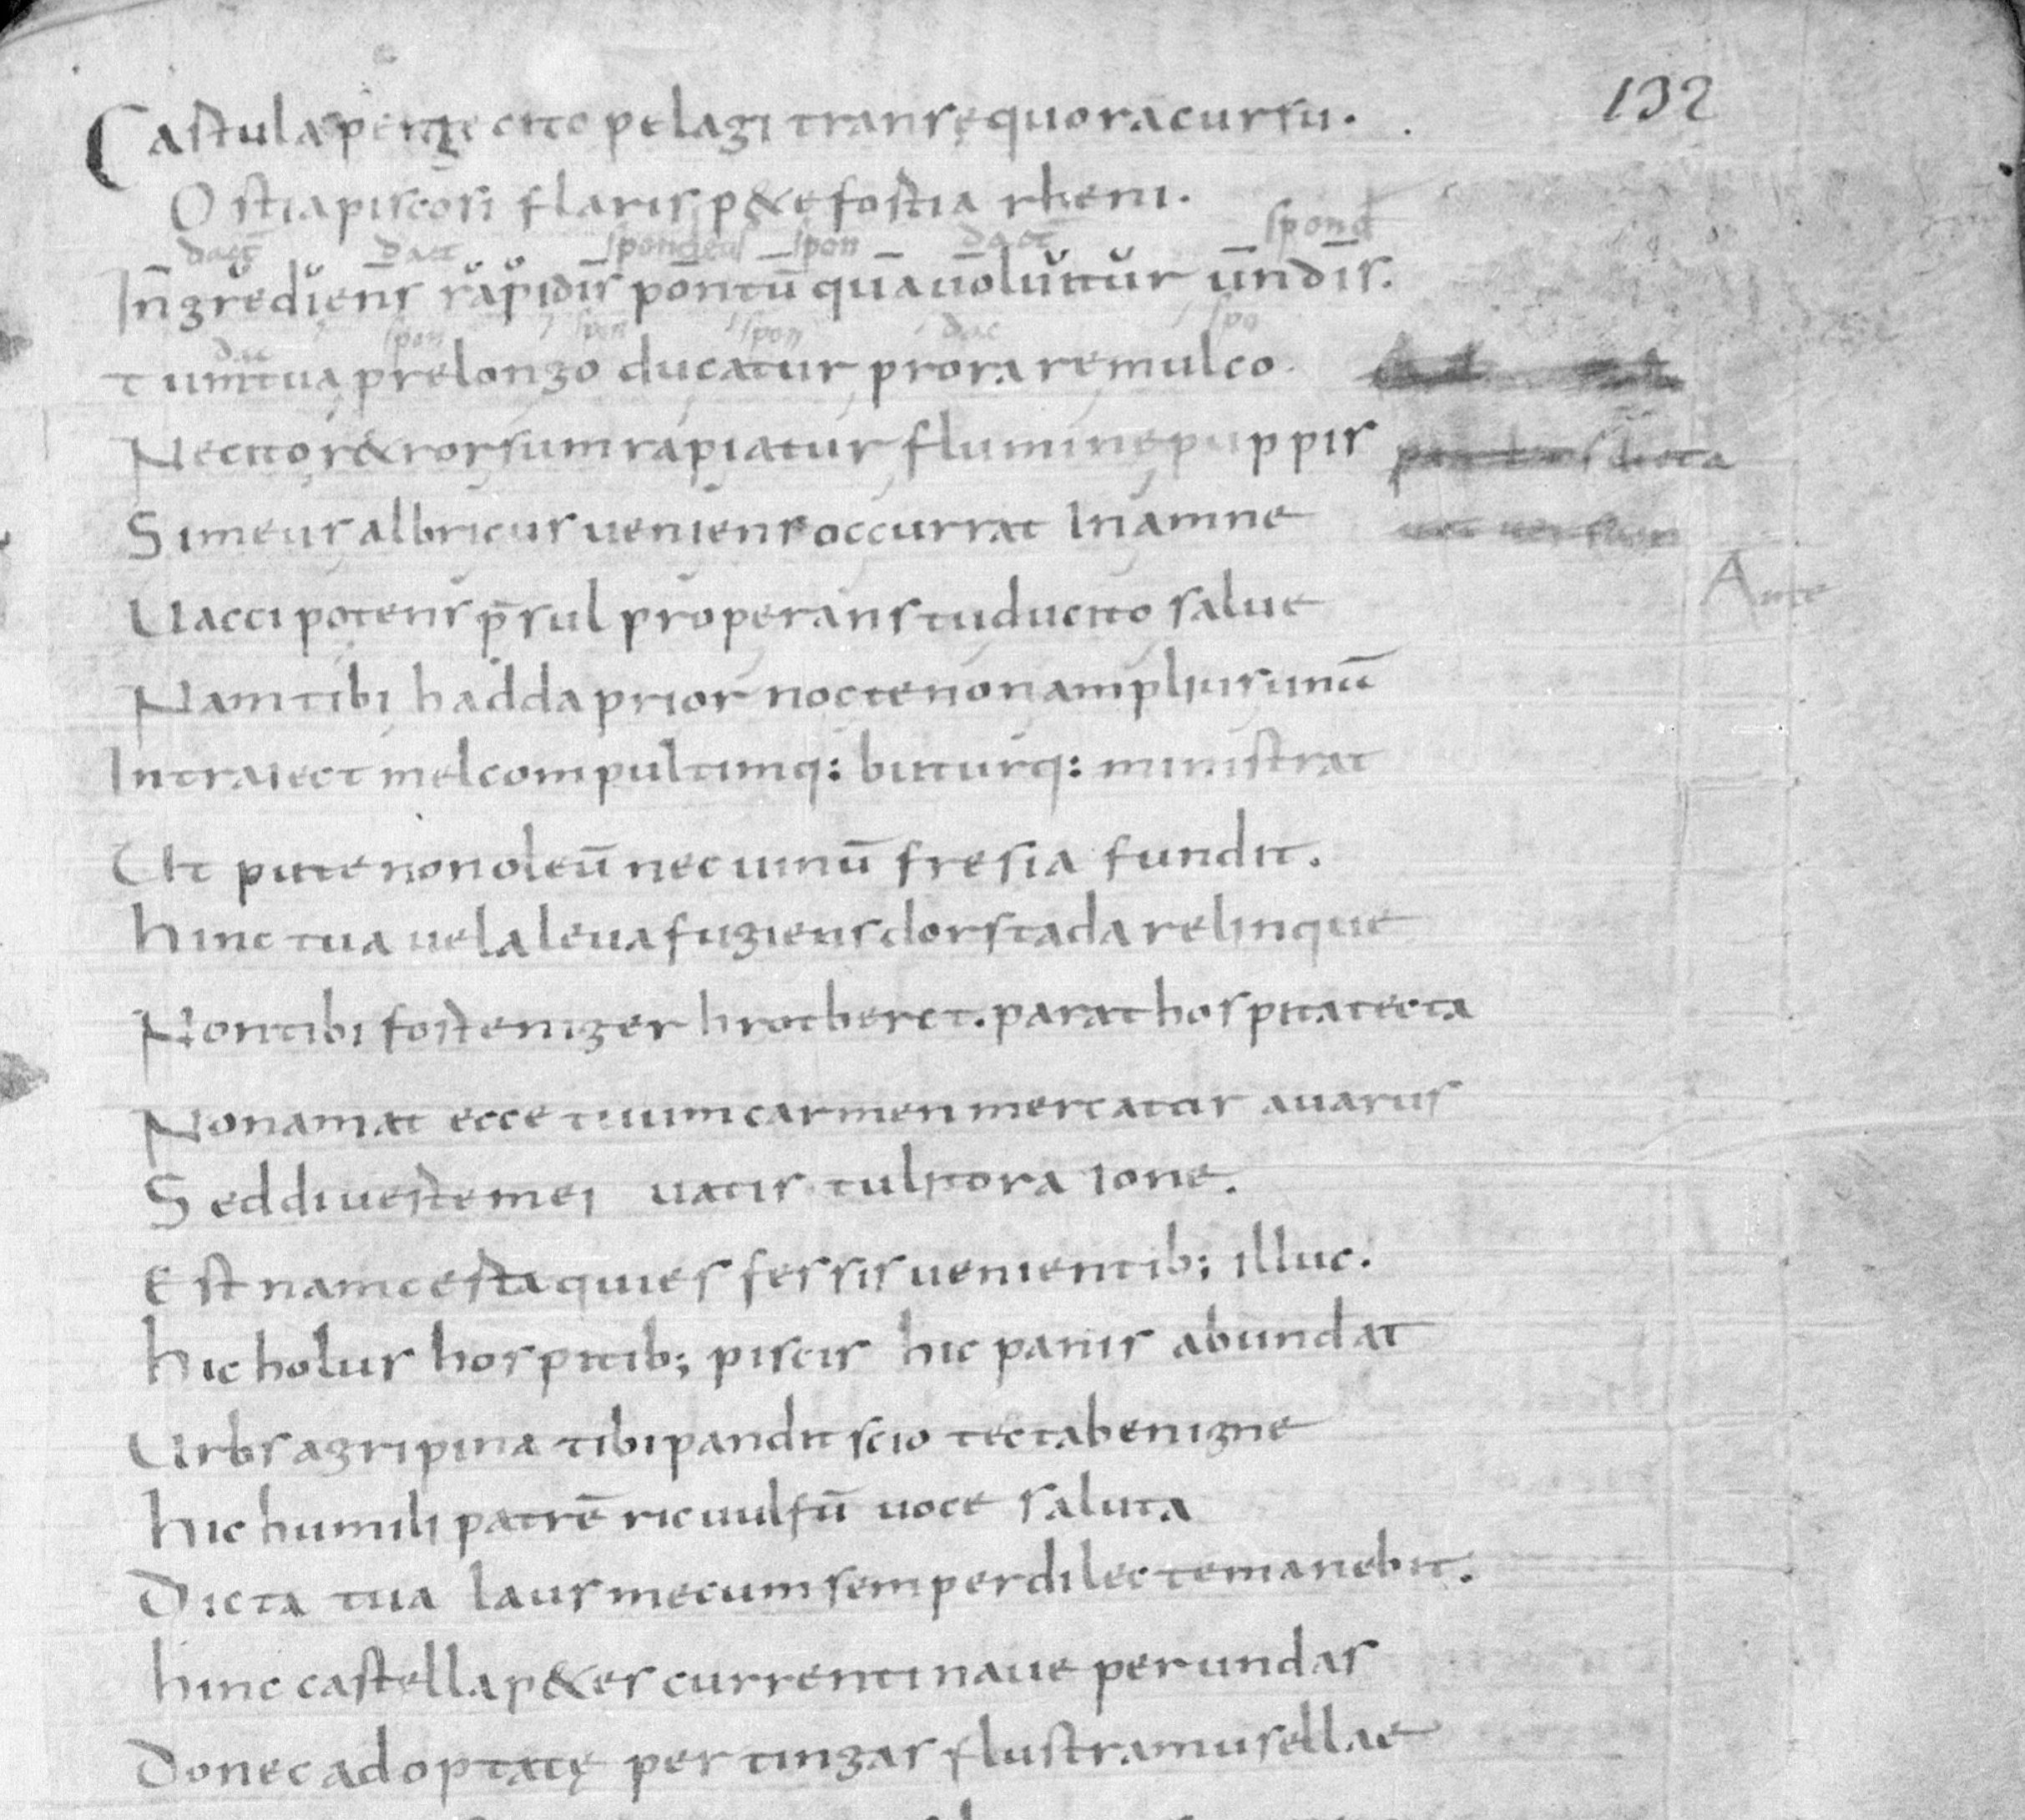 132
Castula perge cito pelagi trans ęquora cursu.
Ostia piscosi flaris p&e fostia rheni.
dact dact spondeus spon dact spond
Ingrediens rapidis pontū qua uoluitur undis.
dac spon spon spon dac spo
tum tua prelongo ducatur prora remulco
Ne cito r&rorsum rapiatur flumine puppis
Si meus albricus ueniens occurrat In amne
Uacci potens p̄sul properans tu ducito salue
Ante
Nam tibi hadda prior nocte non amplius unū
In traiect mel compultimq: buturq: ministrat
Ut pute non oleū nec uinū fresia fundit.
hinc tua uela leua fugiens dorstada relinque
Non tibi foste niger hrotberct. parat hospita tecta
Non amat ecce tuum carmen mercatur auarus
Sed diueste mei uatis tulit ora ione.
Est nam cesta quies fessis uenientib; illuc.
hic holus hospitib; piscis hic panis abundat
Urbs agripina tibi pandit scio tecta benigne
hic humili patrē ricuulfū uoce saluta
Dicta tua laus mecum semper dilecte manebit.
hinc castella p&es currenti naue per undas
Donec ad optatę pertingas flustra musellae